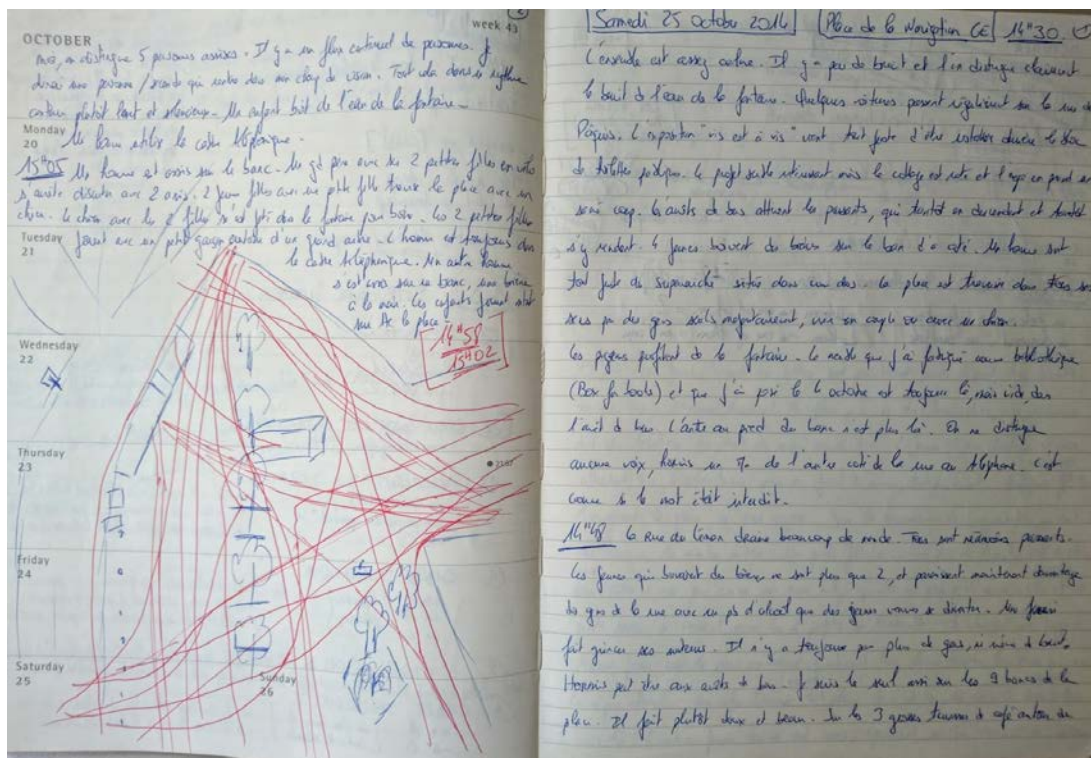 ②
week 43
OCTOBER
moi, on distingue 5 personnes assises. Il y a un flux continuel de personnes. Je
dirai une personne / seconde qui rentre dans mon champ de vision. Tout cela dans un rythme
certain plutôt lent et silencieux. Un enfant boit de l'eau de la fontaine.
Monday
20
Un homme utilise la cabine téléphonique.
15"05 Un homme est assis sur le banc. Un gd père avec ses 2 petites filles en vélo
s'arrête discuter avec 2 amis. 2 jeunes filles avec une petite fille traverse la place avec un
chien. Le chien avec les 2 filles s'est jeté dans la fontaine pour boire. Les 2 petites filles
Tuesday
21
jouent avec un petit garçon autour d'un grand arbre. L'homme est toujours dans
la cabine téléphonique. Un autre homme
s'est assis sur un banc, une bière
à la main. Les enfants jouent
sur la place
14"58
15"02
Wednesday
22
Thursday
23
Friday
24
Saturday
25
Sunday
26
Samedi 25 Octobre 2014 Place de la Navigation GE 14"30 ①
L'ensemble est assez calme. Il y a peu de bruit et l'on distingue clairement
le bruit de l'eau de la fontaine. Quelques voitures passent régulièrement sur la rue de
Pâquis. L'exposition "vis et à vis" vient tout juste d'être installée derrière le bloc
de toilettes publiques. Le projet semble intéressant mais le collage est raté et l'expo en perd
Les arrêts de bus attirent les passants, qui tantôt en descendent et tantôt
s'y rendent. 4 jeunes boivent des bières sur le banc d'à côté. Un homme sort
tout juste du supermarché situé dans mon dos. La place est traversée dans tous ses
sens par des gens seuls majoritairement, voir en couple ou avec un chien.
Les pigeons profitent de la fontaine. Le que j'ai fabriqué comme bibliothèque
(Box for books) et que j'ai posé le 6 octobre est toujours là, mais vide, dans
l'arrêt de bus. L'autre au pied du banc n'est plus là. On ne distingue
aucune voix, hormis un Mr de l'autre côté de la rue au téléphone. C'est
comme si le mot était interdit.
14"48 La Rue du Léman draine beaucoup de monde. Tous sont néanmoins passants.
Les jeunes qui buvaient des bières ne sont plus que 2, et paraissent maintenant davantage
des gens de la rue avec un pb d'alcool que des jeunes venus se divertir. Un
fait grincer ses Il n'y a toujours pas plus de gens, ni même de bruit.
Hormis peut être aux arrêts de bus. Je suis le seul assis sur les 9 bancs de la
place. Il fait plutôt doux et beau. Sur les 3 grosses terrasses de café autour de